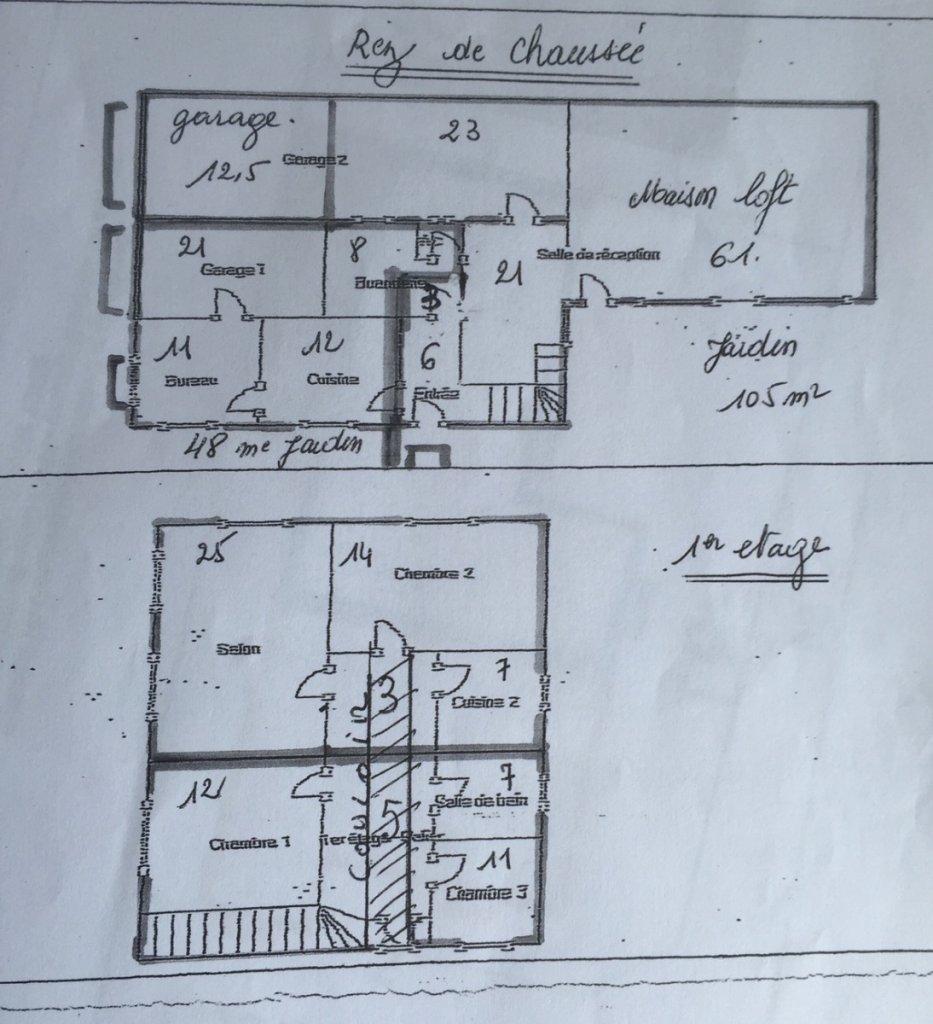 Rez de chaussée
garage.
12,5
Garage 2
23
Maison loft
61.
Salle de réception
21
Garage 1
8
Buanderie
21
3
11
Bureau
12
Cuisine
6
Entrée
Jardin
105 m²
48 me Jardin
1er etage
25
Salon
14
Chambre 2
3
7
Cuisine 2
couloir
12
Chambre 1
5
7
Salle de bain
11
Chambre 3